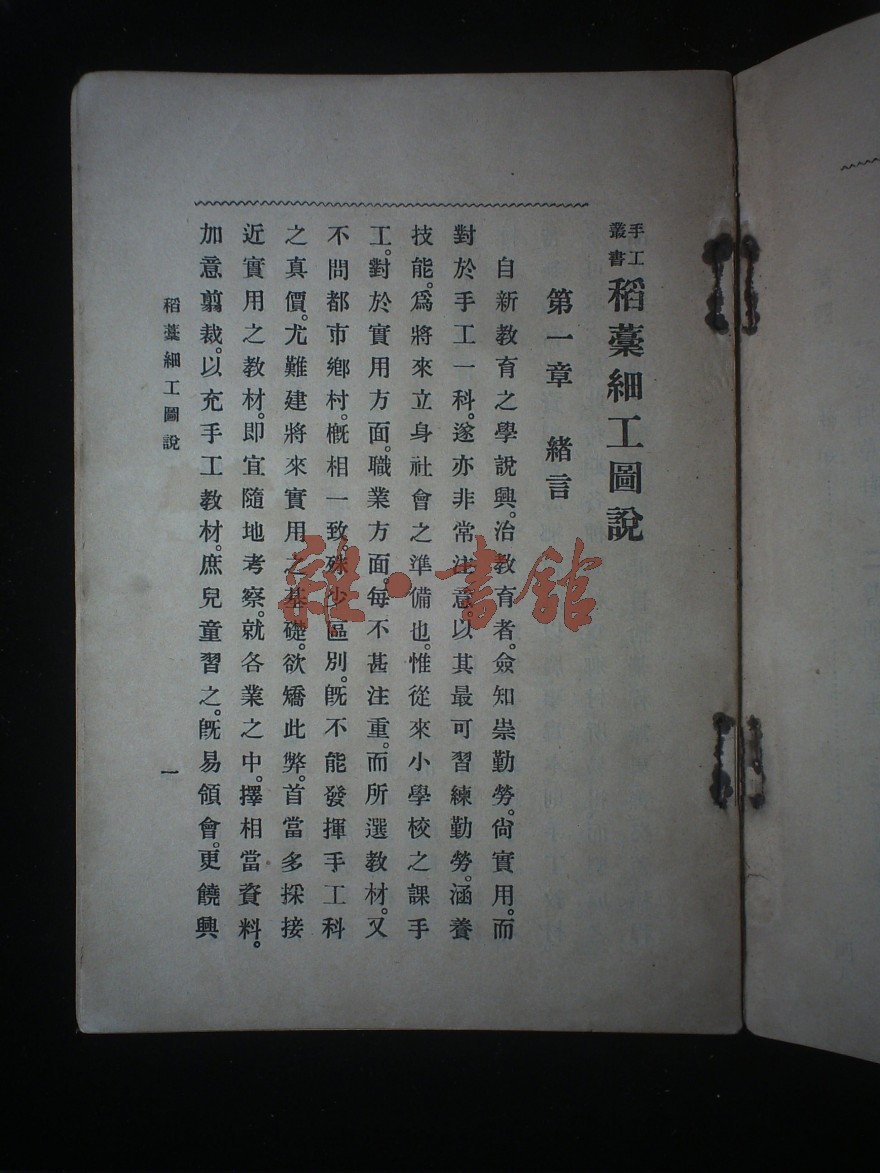 手工叢書 稻藁細工圖說
第一章 緒言
自新教育之學說興。治教育者。僉知崇勤勞。尙實用。而
對於手工一科。遂亦非常注意。以其最可習練勤勞。涵養
技能。爲將來立身社會之準備也。惟從來小學校之課手
工。對於實用方面。職業方面。每不甚注重。而所選教材。又
不問都市鄕村。槪相一致。殊少區別。旣不能發揮手工科
之眞價。尤難建將來實用之基礎。欲矯此弊。首當多採接
近實用之教材。卽宜隨地考察。就各業之中。擇相當資料。
加意翦裁。以充手工教材。庶兒童習之。旣易領會。更饒興
稻藁細工圖說
一
雜·書館